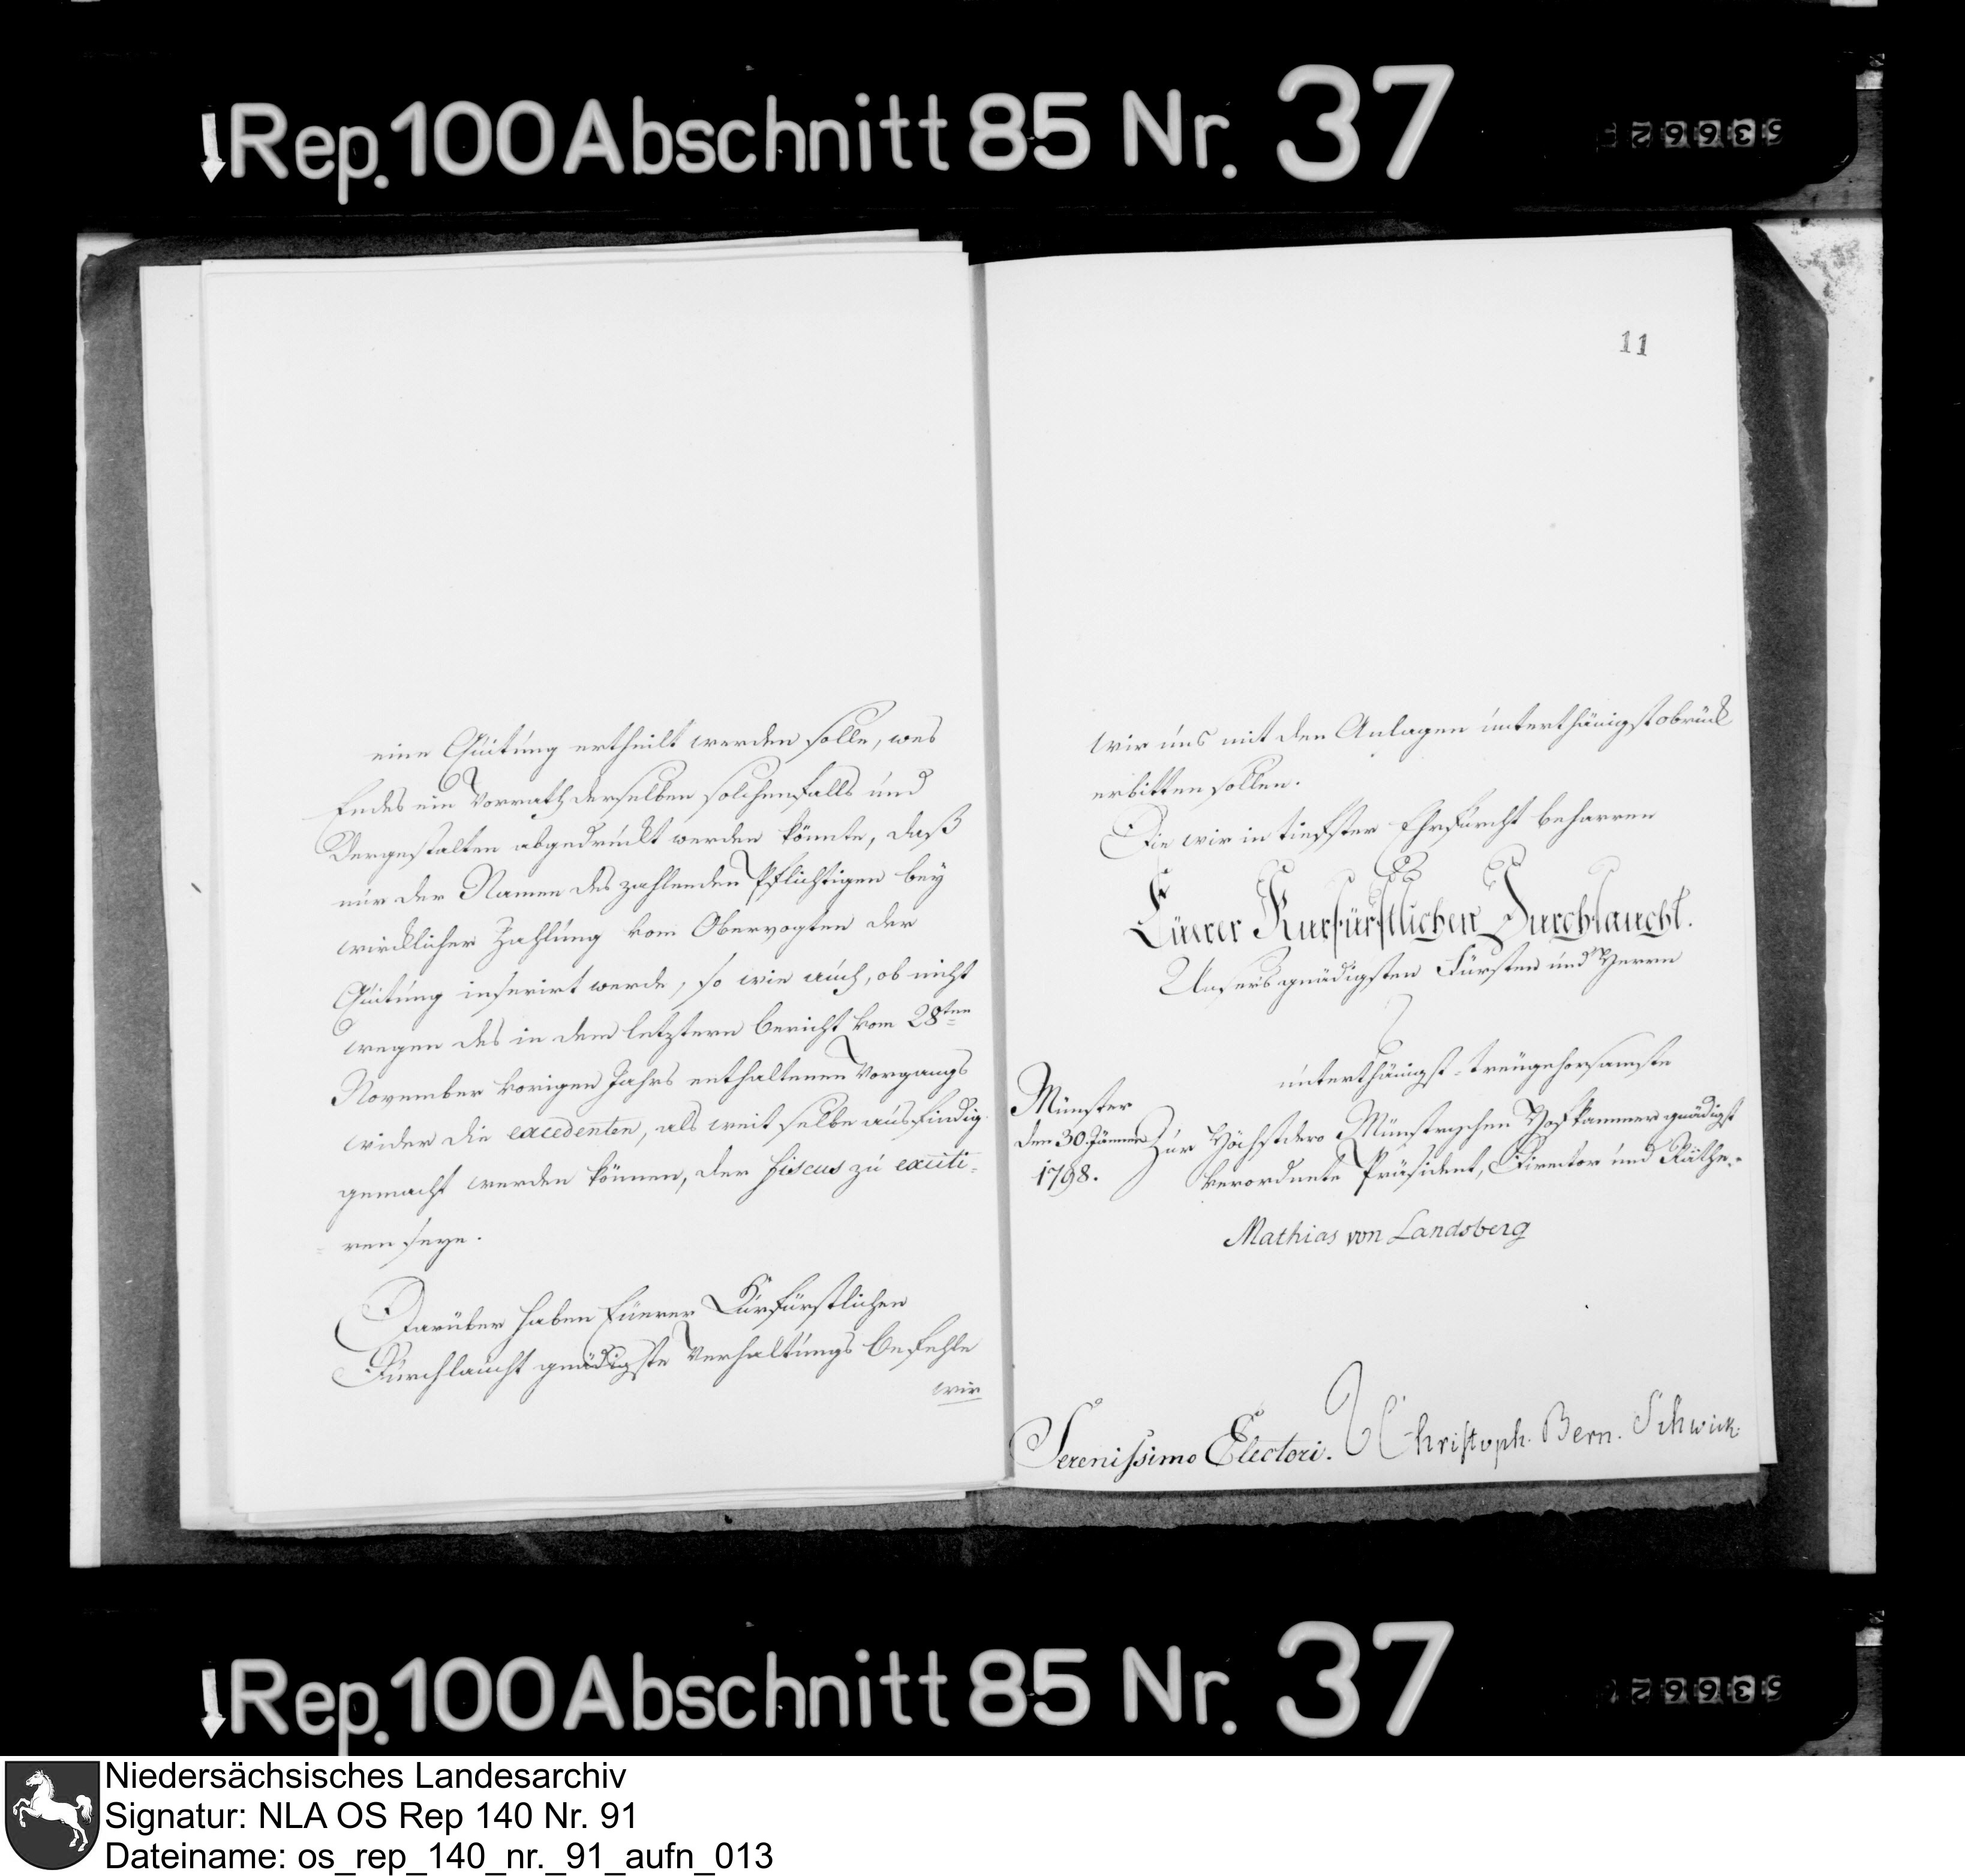 Rep. 100 Abschnitt 85 Nr. 37
53662
11
eine Quitung ertheilt werden solle, wes
Endes ein Vorrath derselben solchenfalls und
dergestalten abgedruckt werden könnte, daß
nur der Namen des zahlenden Pflichtigen bey
wirklicher Zahlung vom Obervogten der
Quitung inserirt werde, so wie auch, ob nicht
wegen des in dem letztern bericht vom 28ten
November vorigen Jahrs enthaltenen Vorgangs
wider die excedenten, als weit selbe ausfindig
gemacht werden können, der fiscus zu exciti-
ren seye.
Darüber haben Euerer Kurfürstlichen
Durchlaucht gnädigste Verhaltungs befehle
wir
wir uns mit den Anlagen unterthänigst
erbitten sollen.
Die wir in tiefster Ehrfurcht beharren
Euerer Kurfürstlichen Durchlaucht.
Unsers gnädigsten Fürsten und Herrn
unterthänigst-treugehorsamste
Münster
den 30. Jänner
1798.
Zur Höchstdero Münstrischen Hofkammer gnädigst
verordnete Präsident, Director und Räthe.
Mathias von Landsberg
Serenissimo Electori.
Christoph. Bern. Schwick
Rep. 100 Abschnitt 85 Nr. 37
53662
Niedersächsisches Landesarchiv
Signatur: NLA OS Rep 140 Nr. 91
Dateiname: os_rep_140_nr._91_aufn_013